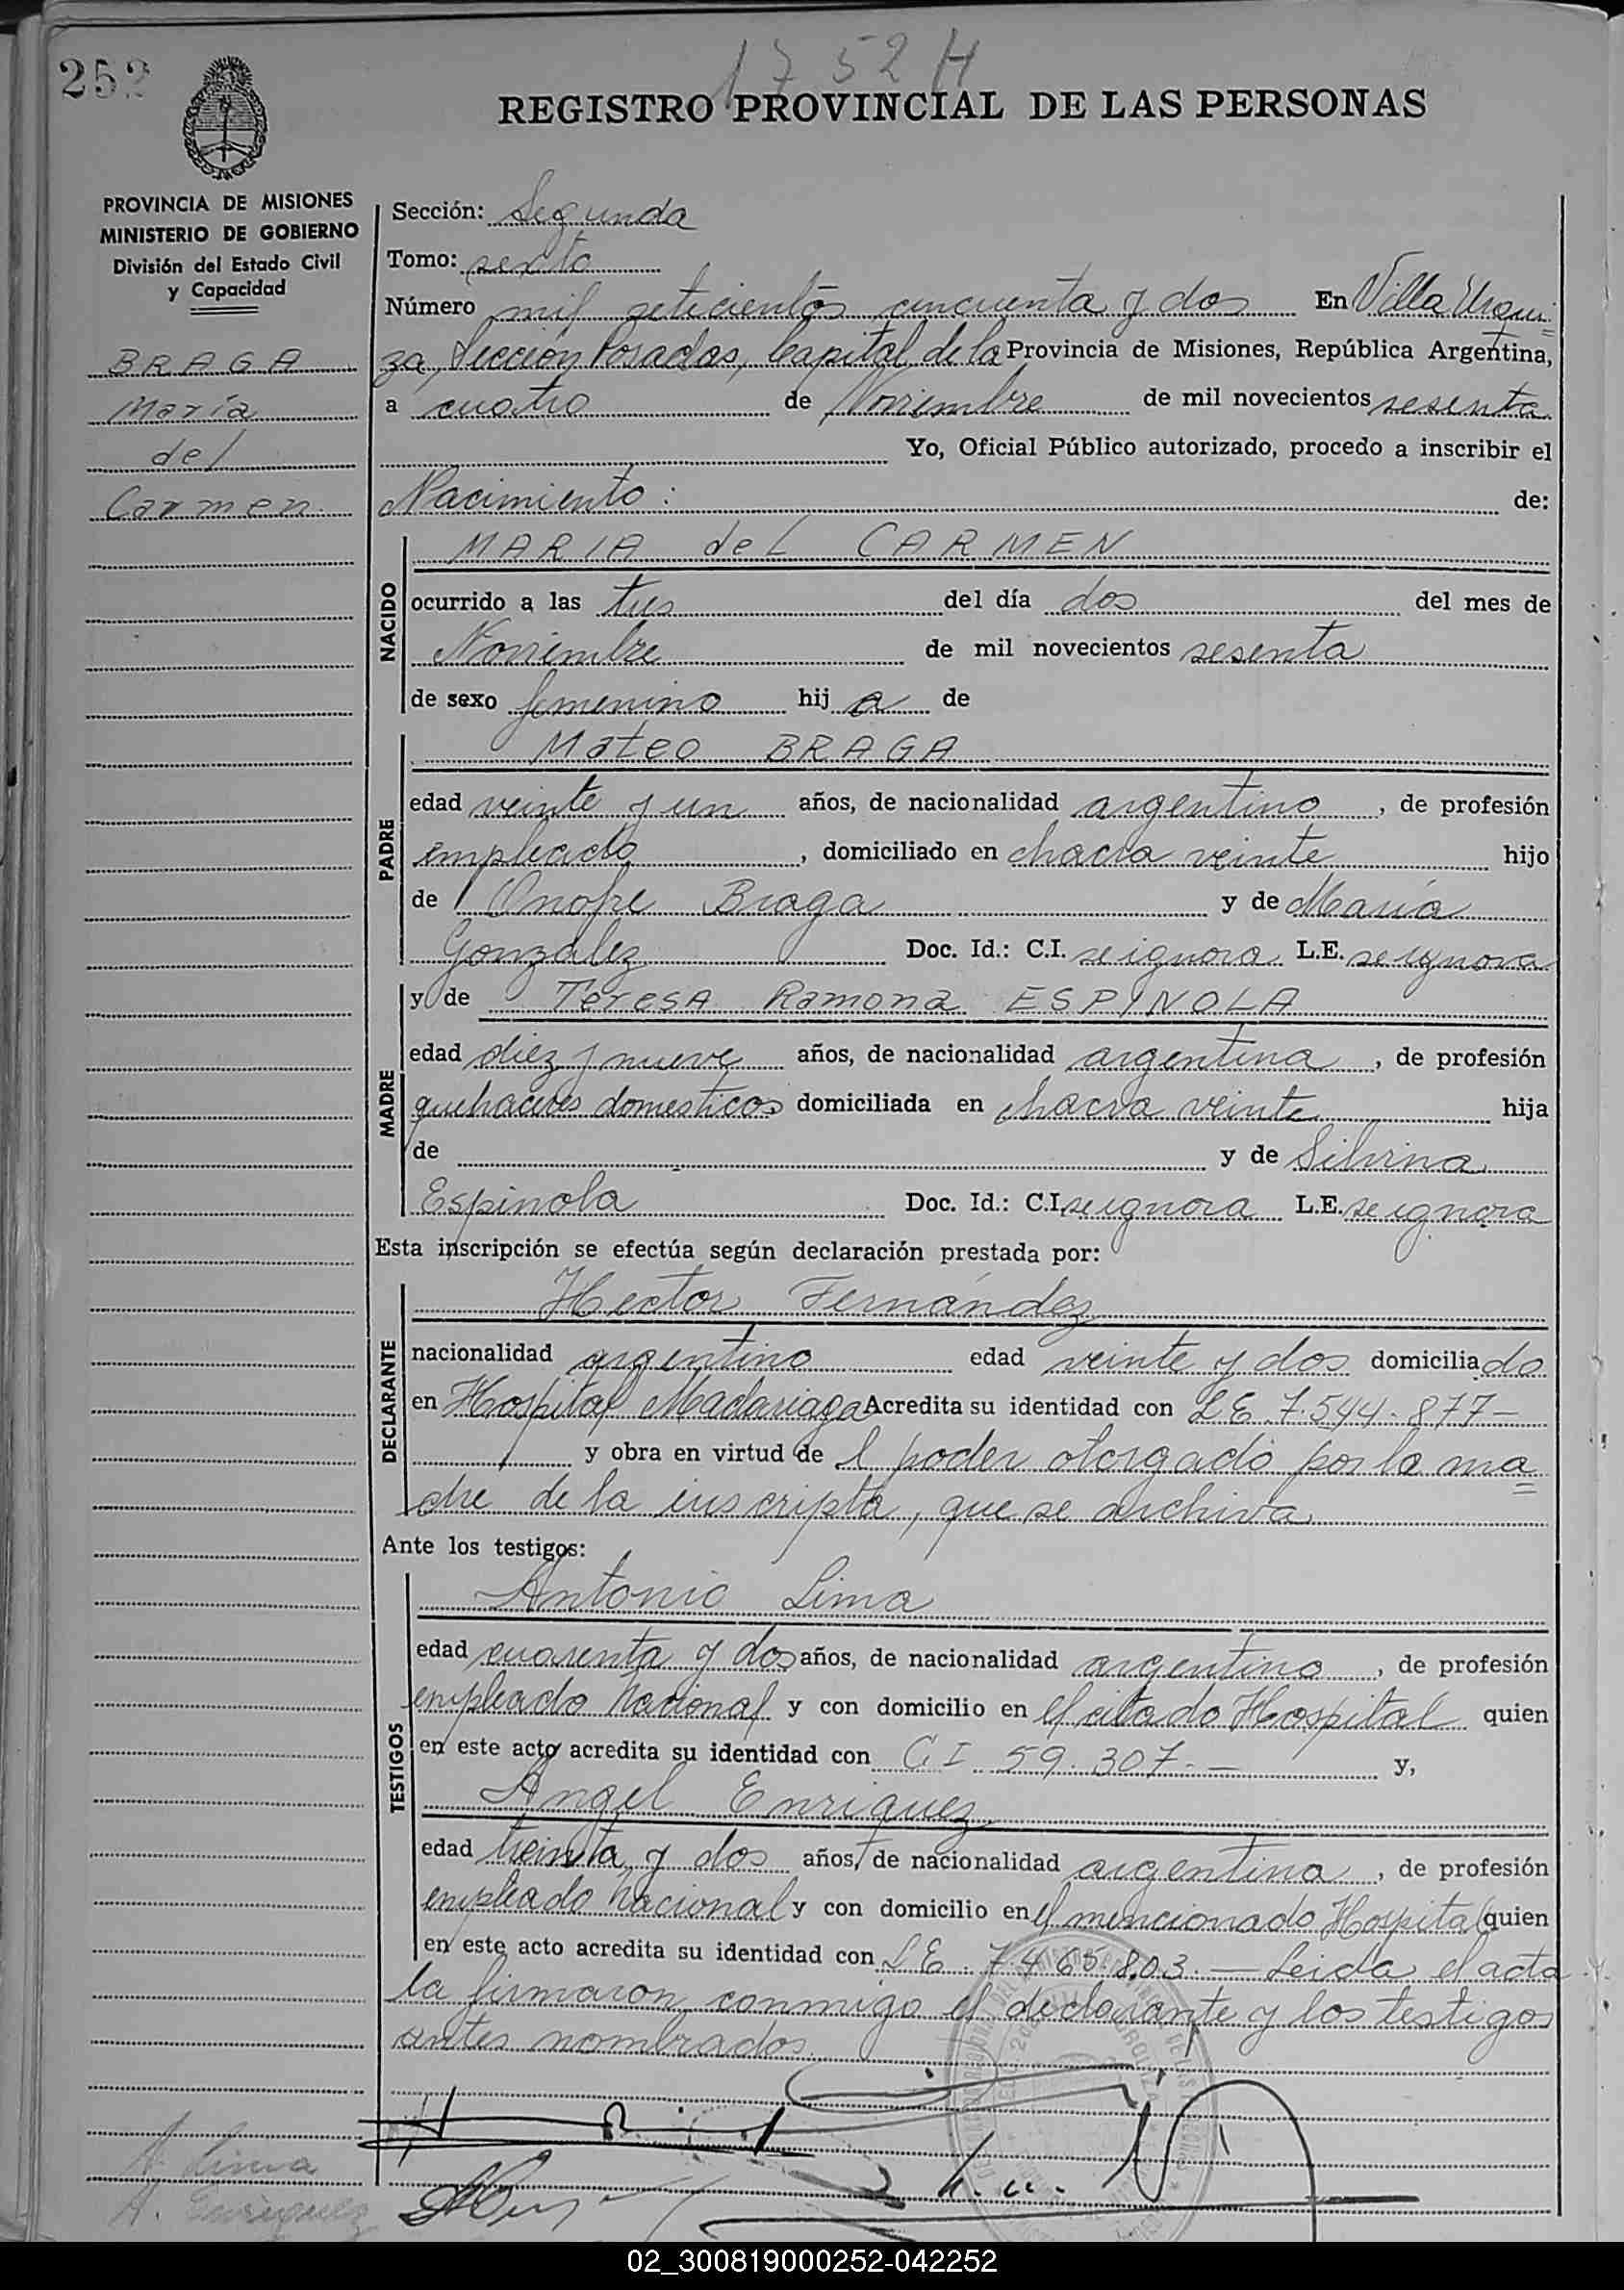 1752 H
252
REGISTRO PROVINCIAL DE LAS PERSONAS
PROVINCIA DE MISIONES
MINISTERIO DE GOBIERNO
División del Estado Civil
y Capacidad
BRAGA
María
del
Carmen
Sección: Segunda
Tomo: sexto
Número mil seticientos cincuenta y dos En Villa Urqui=
za, Sección Posadas, Capital de la Provincia de Misiones, República Argentina,
a cuatro de Noviembre de mil novecientos sesenta
Yo, Oficial Público autorizado, procedo a inscribir el
Nacimiento: de:
NACIDO
MARIA del CARMEN
ocurrido a las tres del día dos del mes de
Noviembre de mil novecientos sesenta
de sexo femenino hij a de
PADRE
Mateo BRAGA
edad veinte y un años, de nacionalidad argentino, de profesión
empleado, domiciliado en chacra veinte hijo
de Onofre Braga y de María
González Doc. Id.: C.I. se ignora L.E. se ignora
MADRE
y de Teresa Ramona ESPINOLA
edad diez y nueve años, de nacionalidad argentina, de profesión
quehaceres domesticos domiciliada en chacra veinte hija
de y de Silvina
Espinola Doc. Id.: C.I. se ignora L.E. se ignora
Esta inscripción se efectúa según declaración prestada por:
DECLARANTE
Hector Fernández
nacionalidad argentino edad veinte y dos domiciliado
en Hospital Madariaga Acredita su identidad con L E 7.544.877-
y obra en virtud de l poder otorgado por la ma=
dre de la inscripta, que se archiva
Ante los testigos:
TESTIGOS
Antonio Lima
edad cuarenta y dos años, de nacionalidad argentino, de profesión
empleado Nacional y con domicilio en el citado Hospital quien
en este acto acredita su identidad con C I 59.307.- y,
Angel Enriquez
edad treinta y dos años, de nacionalidad argentina, de profesión
empleado Nacional y con domicilio en el mencionado Hospital quien
en este acto acredita su identidad con L E. 7.465.803.- Leida el acta
la firmaron conmigo el declarante y los testigos
antes nombrados.
A. Lima
A. Enriquez
02_300819000252-042252